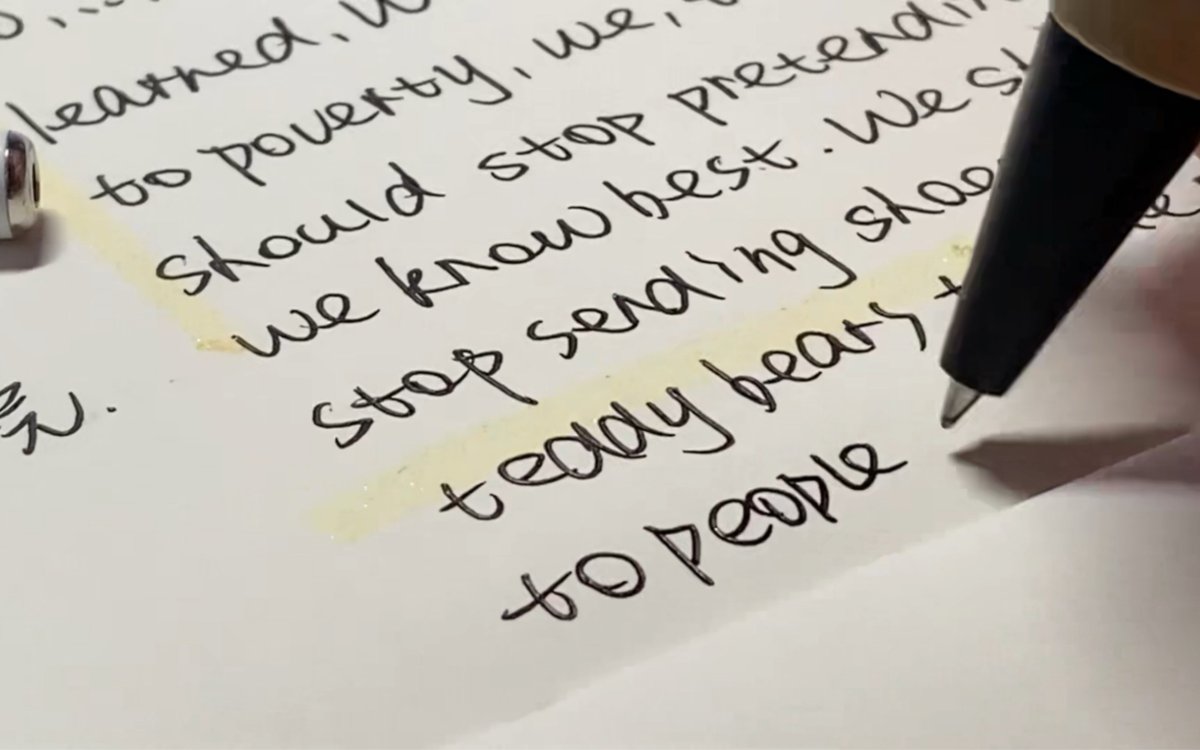 learned.
to poverty, we,
should stop
we know best. We
stop sending shoes
teddy bears
to people